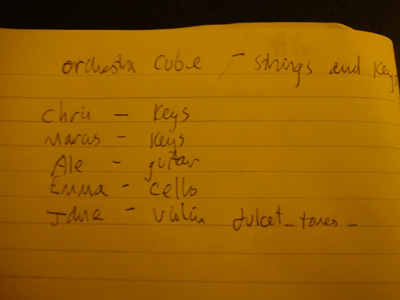 orchestra cube - strings and keys
Chris - keys
Marcus - keys
Ale - guitar
Emma - cello
Jane - violin dulcet_tones_